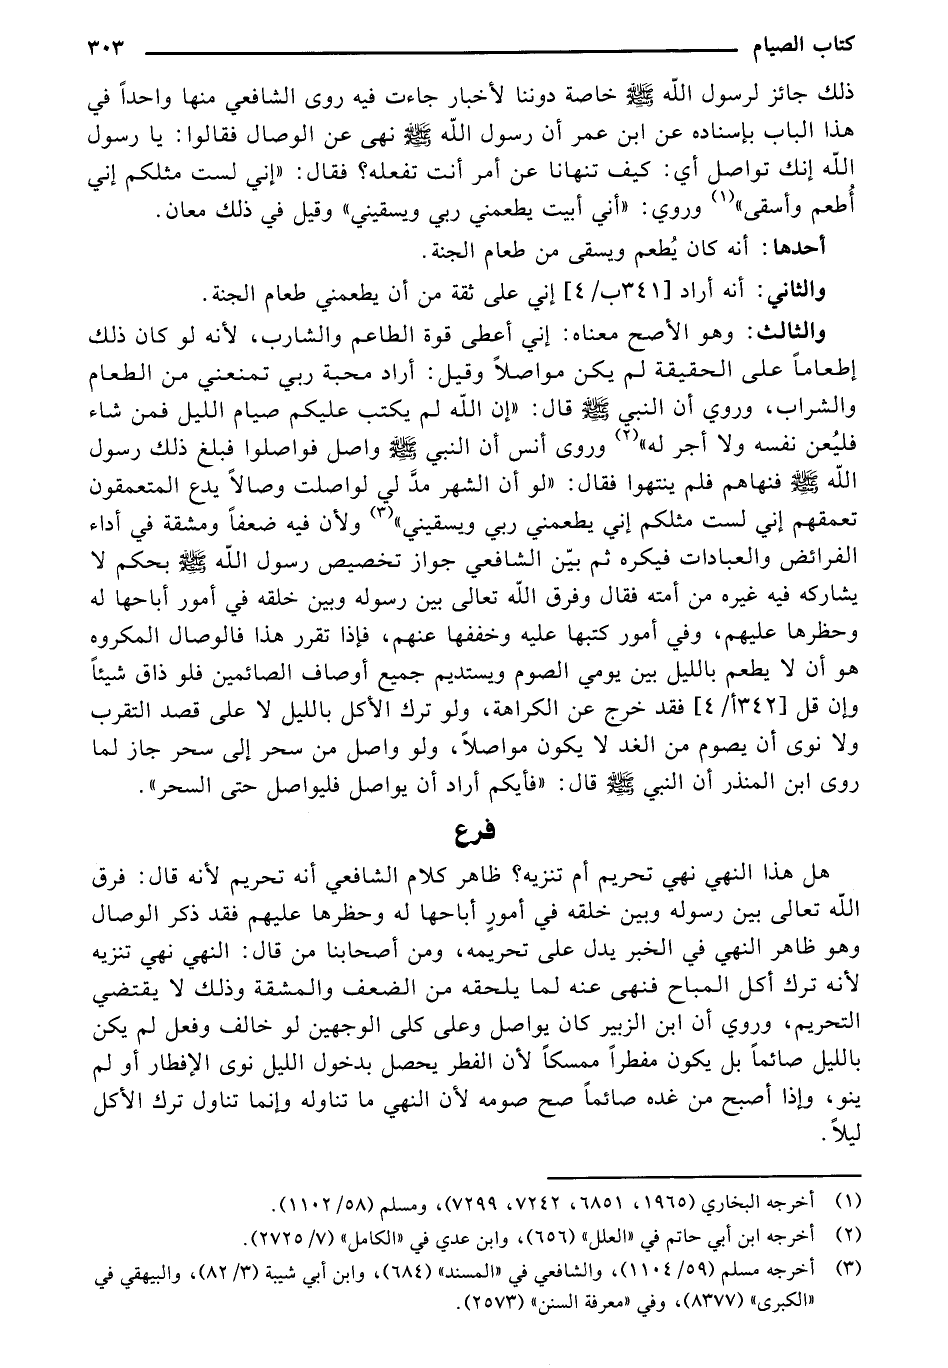 كتاب الصيام ٣٠٣
ذلك جائز لرسول الله ﷺ خاصة دوننا لأخبار جاءت فيه روى الشافعي منها واحداً في
هذا الباب بإسناده عن ابن عمر أن رسول الله ﷺ نهى عن الوصال فقالوا: يا رسول
الله إنك تواصل أي: كيف تنهانا عن أمر أنت تفعله؟ فقال: «إني لست مثلكم إني
أُطعم وأسقى»(١) وروي: «أني أبيت يطعمني ربي ويسقيني» وقيل في ذلك معان.
أحدها: أنه كان يُطعم ويسقى من طعام الجنة.
والثاني: أنه أراد [٣٤١ب/ ٤] إني على ثقة من أن يطعمني طعام الجنة.
والثالث: وهو الأصح معناه: إني أعطى قوة الطاعم والشارب، لأنه لو كان ذلك
إطعاماً على الحقيقة لم يكن مواصلاً وقيل: أراد محبة ربي تمنعني من الطعام
والشراب، وروي أن النبي ﷺ قال: «إن الله لم يكتب عليكم صيام الليل فمن شاء
فليُعن نفسه ولا أجر له»(٢) وروى أنس أن النبي ﷺ واصل فواصلوا فبلغ ذلك رسول
الله ﷺ فنهاهم فلم ينتهوا فقال: «لو أن الشهر مدَّ لي لواصلت وصالاً يدع المتعمقون
تعمقهم إني لست مثلكم إني يطعمني ربي ويسقيني»(٣) ولأن فيه ضعفاً ومشقة في أداء
الفرائض والعبادات فيكره ثم بيّن الشافعي جواز تخصيص رسول الله ﷺ بحكم لا
يشاركه فيه غيره من أمته فقال وفرق الله تعالى بين رسوله وبين خلقه في أمور أباحها له
وحظرها عليهم، وفي أمور كتبها عليه وخففها عنهم، فإذا تقرر هذا فالوصال المكروه
هو أن لا يطعم بالليل بين يومي الصوم ويستديم جميع أوصاف الصائمين فلو ذاق شيئاً
وإن قل [٣٤٢أ/ ٤] فقد خرج عن الكراهة، ولو ترك الأكل بالليل لا على قصد التقرب
ولا نوى أن يصوم من الغد لا يكون مواصلاً، ولو واصل من سحر إلى سحر جاز لما
روى ابن المنذر أن النبي ﷺ قال: «فأيكم أراد أن يواصل فليواصل حتى السحر».
فرع
هل هذا النهي نهي تحريم أم تنزيه؟ ظاهر كلام الشافعي أنه تحريم لأنه قال: فرق
الله تعالى بين رسوله وبين خلقه في أمورٍ أباحها له وحظرها عليهم فقد ذكر الوصال
وهو ظاهر النهي في الخبر يدل على تحريمه، ومن أصحابنا من قال: النهي نهي تنزيه
لأنه ترك أكل المباح فنهى عنه لما يلحقه من الضعف والمشقة وذلك لا يقتضي
التحريم، وروي أن ابن الزبير كان يواصل وعلى كلى الوجهين لو خالف وفعل لم يكن
بالليل صائماً بل يكون مفطراً ممسكاً لأن الفطر يحصل بدخول الليل نوى الإفطار أو لم
ينو، وإذا أصبح من غده صائماً صح صومه لأن النهي ما تناوله وإنما تناول ترك الأكل
ليلاً.
(١) أخرجه البخاري (١٩٦٥، ٦٨٥١، ٧٢٤٢، ٧٢٩٩)، ومسلم (٥٨/ ١١٠٢).
(٢) أخرجه ابن أبي حاتم في «العلل» (٦٥٦)، وابن عدي في «الكامل» (٧/ ٢٧٢٥).
(٣) أخرجه مسلم (٥٩/ ١١٠٤)، والشافعي في «المسند» (٦٨٤)، وابن أبي شيبة (٣/ ٨٢)، والبيهقي في
«الكبرى» (٨٣٧٧)، وفي «معرفة السنن» (٢٥٧٣).